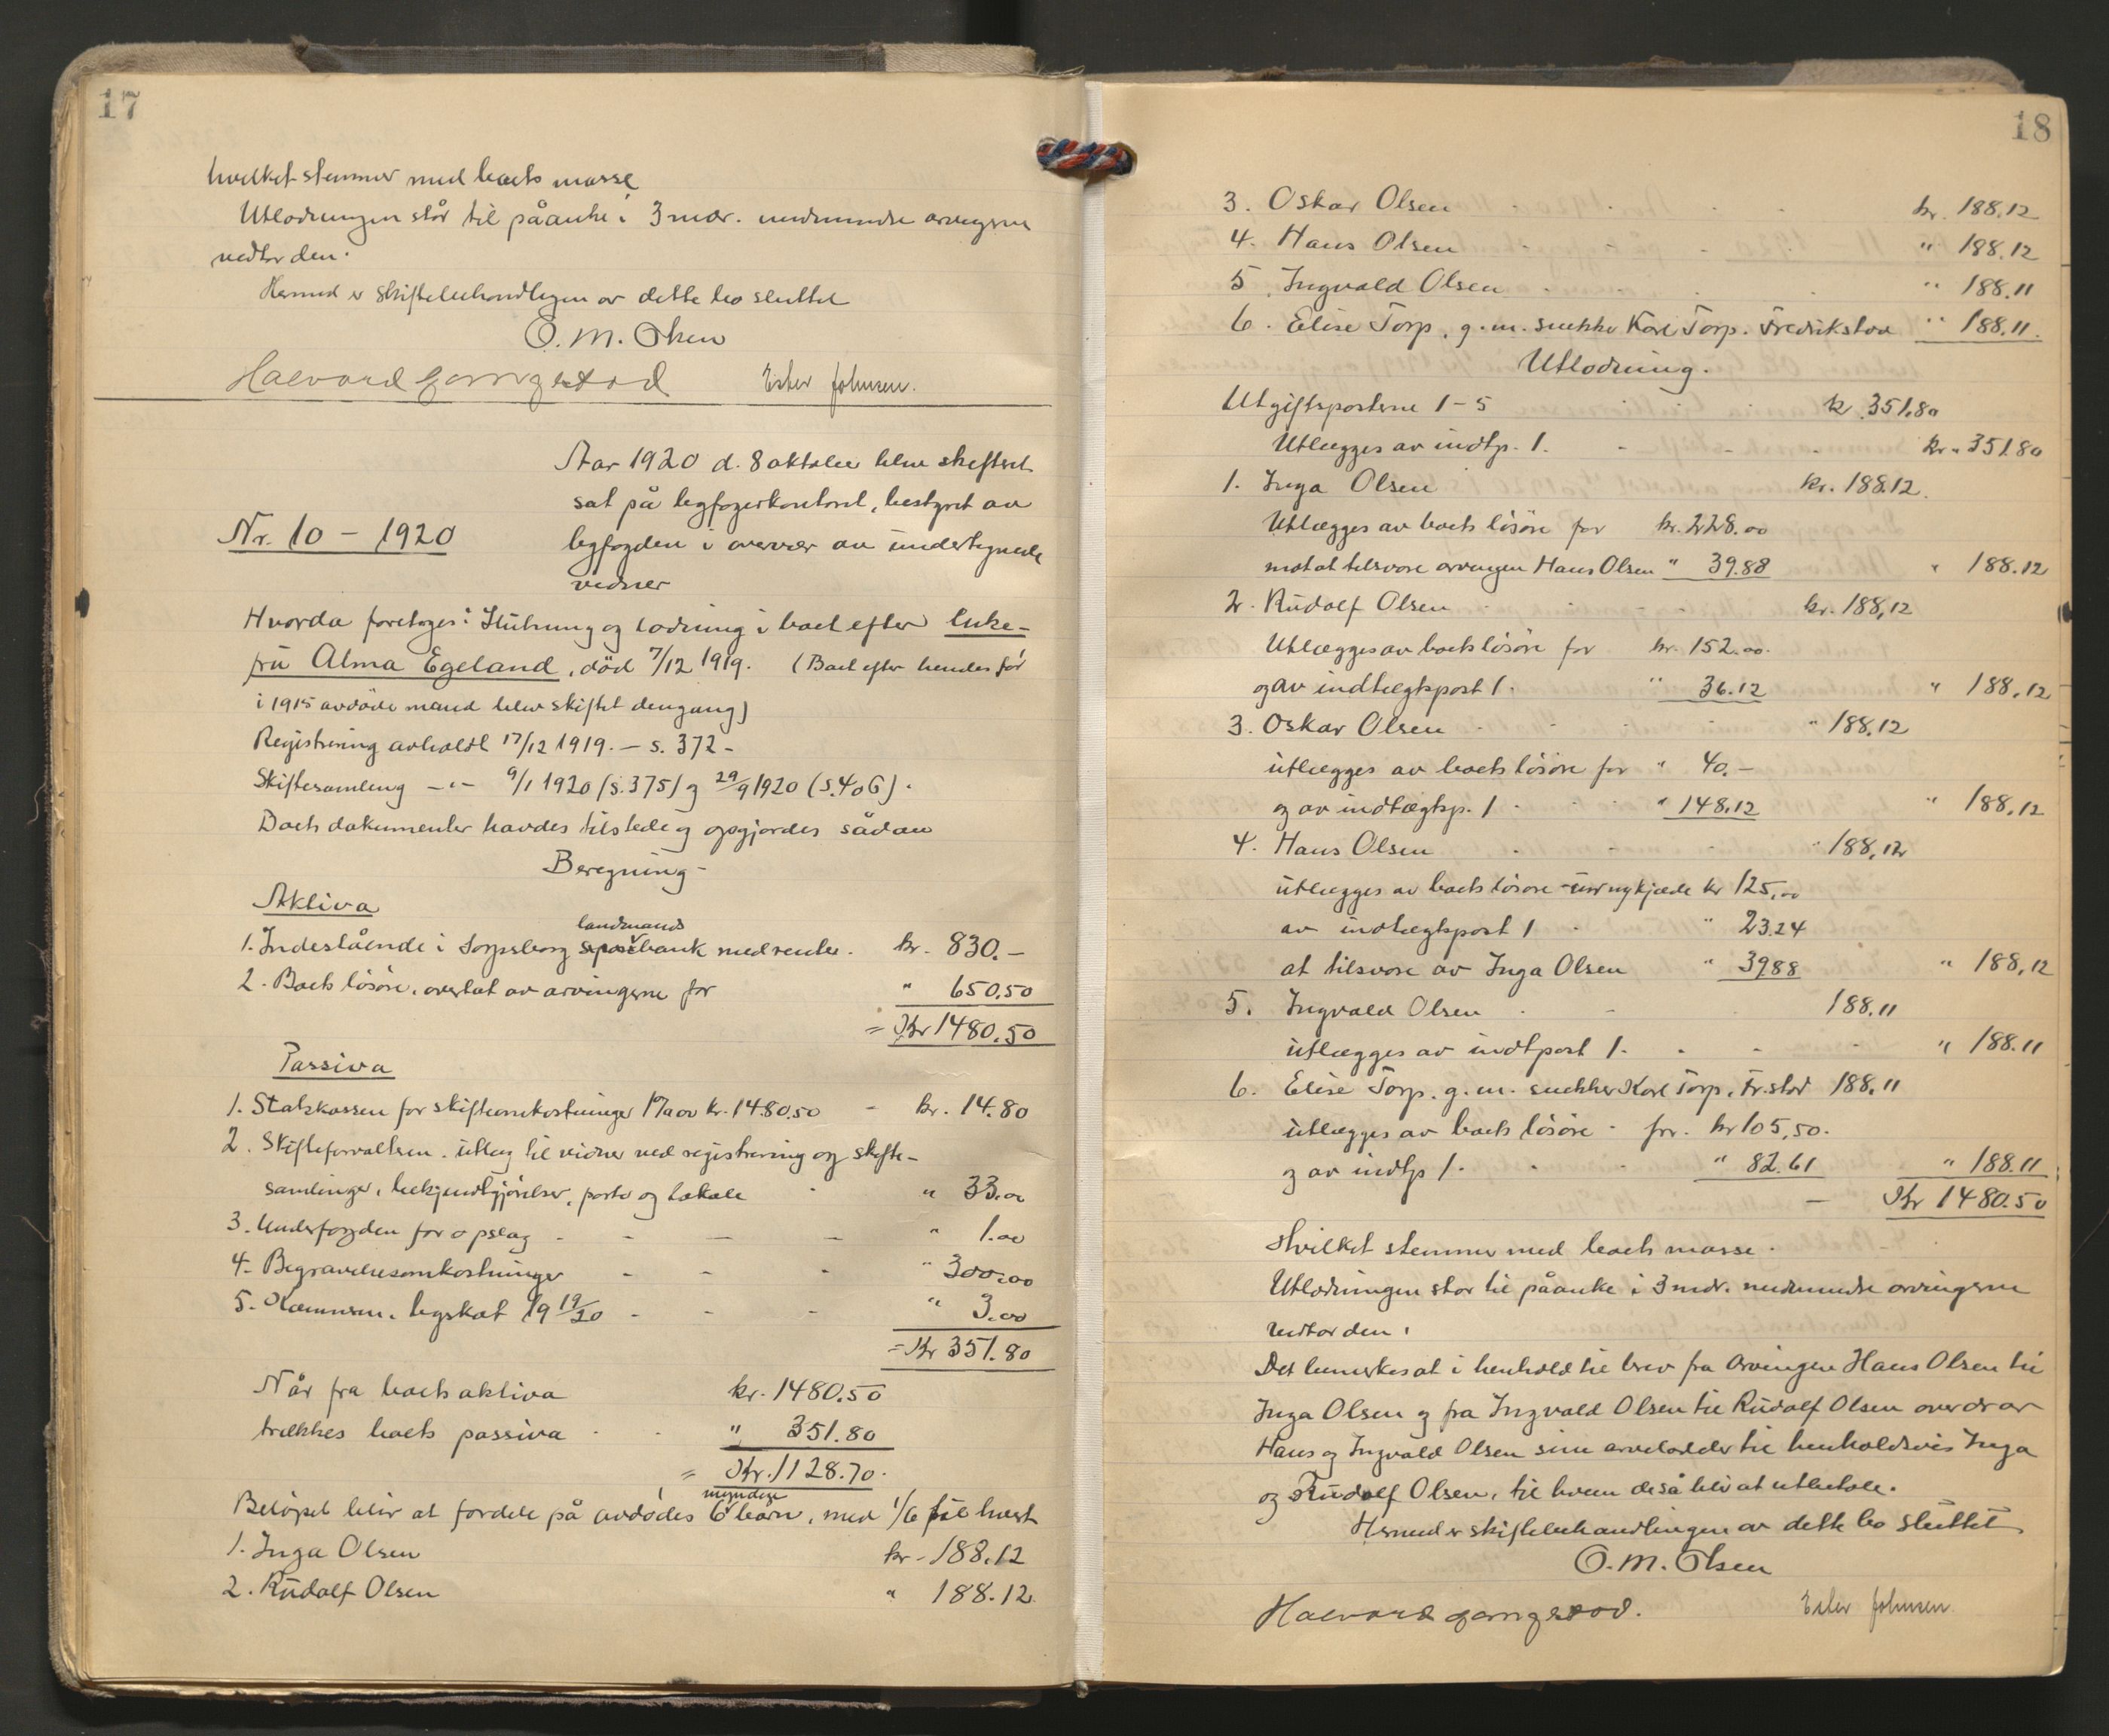 17
hvilket stemmer med boets masse
Utlodningen står til påanke i 3 mdr. medmindre arvingerne
vedtar den.
Hermed er skiftebehandlingen av dette bo sluttet
O. M. Olsen
Halvard Ester Johnsen.
Aar 1920 d. 8 oktober blev skifteret
sat på bygfogedkontoret, bestyret av
Nr. 10 – 1920
bygfogden i overvær av undertegnede
vidner
Hvorda foretoges: Slutning og lodning i boet efter enke-
fru Alma Egeland, död 7/12 1919. (Boet efter hendes før
i 1915 avdöde mand blev skiftet dengang)
Registrering avholdt 17/12 1919. – s. 372 –
Skiftesamling –"– 9/1 1920 (s. 375) og 29/9 1920 (s. 406).
Boets dokumenter havdes tilstede og opgjordes sådan
Beregning –
Aktiva
landmands
1. Indestående i Sarpsborg bank med renter. kr. 830.–
2. Boets lösöre, overtat av arvingerne for " 650.50
= Kr 1480.50
Passiva
1. Statskassen for skifteomkostninger 1% av kr. 1480.50 – kr. 14.80
2. Skifteforvalteren. utlæg til vidner ved registrering og skifte-
samlinger, bekjendtgjörelser, porto og lokale " 33.00
3. Underfogden for opslag – – – – " 1.00
4. Begravelsesomkostninger – – – " 300.00
5. Kæmneren, byskat 19 19/20 – – – " 3.00
= Kr 351.80
Når fra boets aktiva kr. 1480.50
trækkes boets passiva " 351.80
= Kr. 1128.70.
myndige
Belöpet blir at fordele på avdödes 6 barn, med 1/6 til hvert
1. Inga Olsen kr. 188.12
2. Rudolf Olsen " 188.12
18
3. Oskar Olsen kr. 188.12
4. Hans Olsen " 188.12
5. Ingvald Olsen " 188.11
6. Elise Torp, g. m. snekker Karl Torp. Fredrikstad " 188.11.
Utlodning.
Utgiftsposterne 1–5 kr. 351.80
Utlægges av indtp. 1. kr. 351.80
1. Inga Olsen kr. 188.12.
Utlægges av boets lösöre for kr. 228.00
mot at tilsvare arvingen Hans Olsen " 39.88 " 188.12
2. Rudolf Olsen kr. 188,12
Utlægges av boets lösöre for kr. 152.00.
og av indtægtspost 1. " 36.12 " 188.12
3. Oskar Olsen " 188.12
utlægges av boets lösöre for " 40.–
og av indtægtsp. 1 " 148.12 " 188.12
4. Hans Olsen " 188,12
utlægges av boets lösöre – ur og kjæde kr 125,00
av indtægtspost 1 " 23.24
at tilsvare av Inga Olsen " 39.88 " 188,12
5. Ingvald Olsen 188.11
utlægges av indtpost 1. " 188.11
6. Elise Torp. g. m. snekker Karl Torp, Fr.stad 188.11
utlægges av boets lösöre – for. kr 105,50.
og av indtp 1. " 82.61 " 188.11
– Kr 1480.50
Hvilket stemmer med boets masse.
Utlodningen står til påanke i 3 mdr. medmindre arvingerne
vedtar den.
Det bemerkes at i henhold til brev fra arvingen Hans Olsen til
Inga Olsen og fra Ingvald Olsen til Rudolf Olsen overdrar
Hans og Ingvald Olsen sine arvelodder til henholdsvis Inga
og Rudolf Olsen, til hvem de så blir at utbetale.
Hermed er skiftebehandlingen av dette bo sluttet
O. M. Olsen
Halvard Ester Johnsen